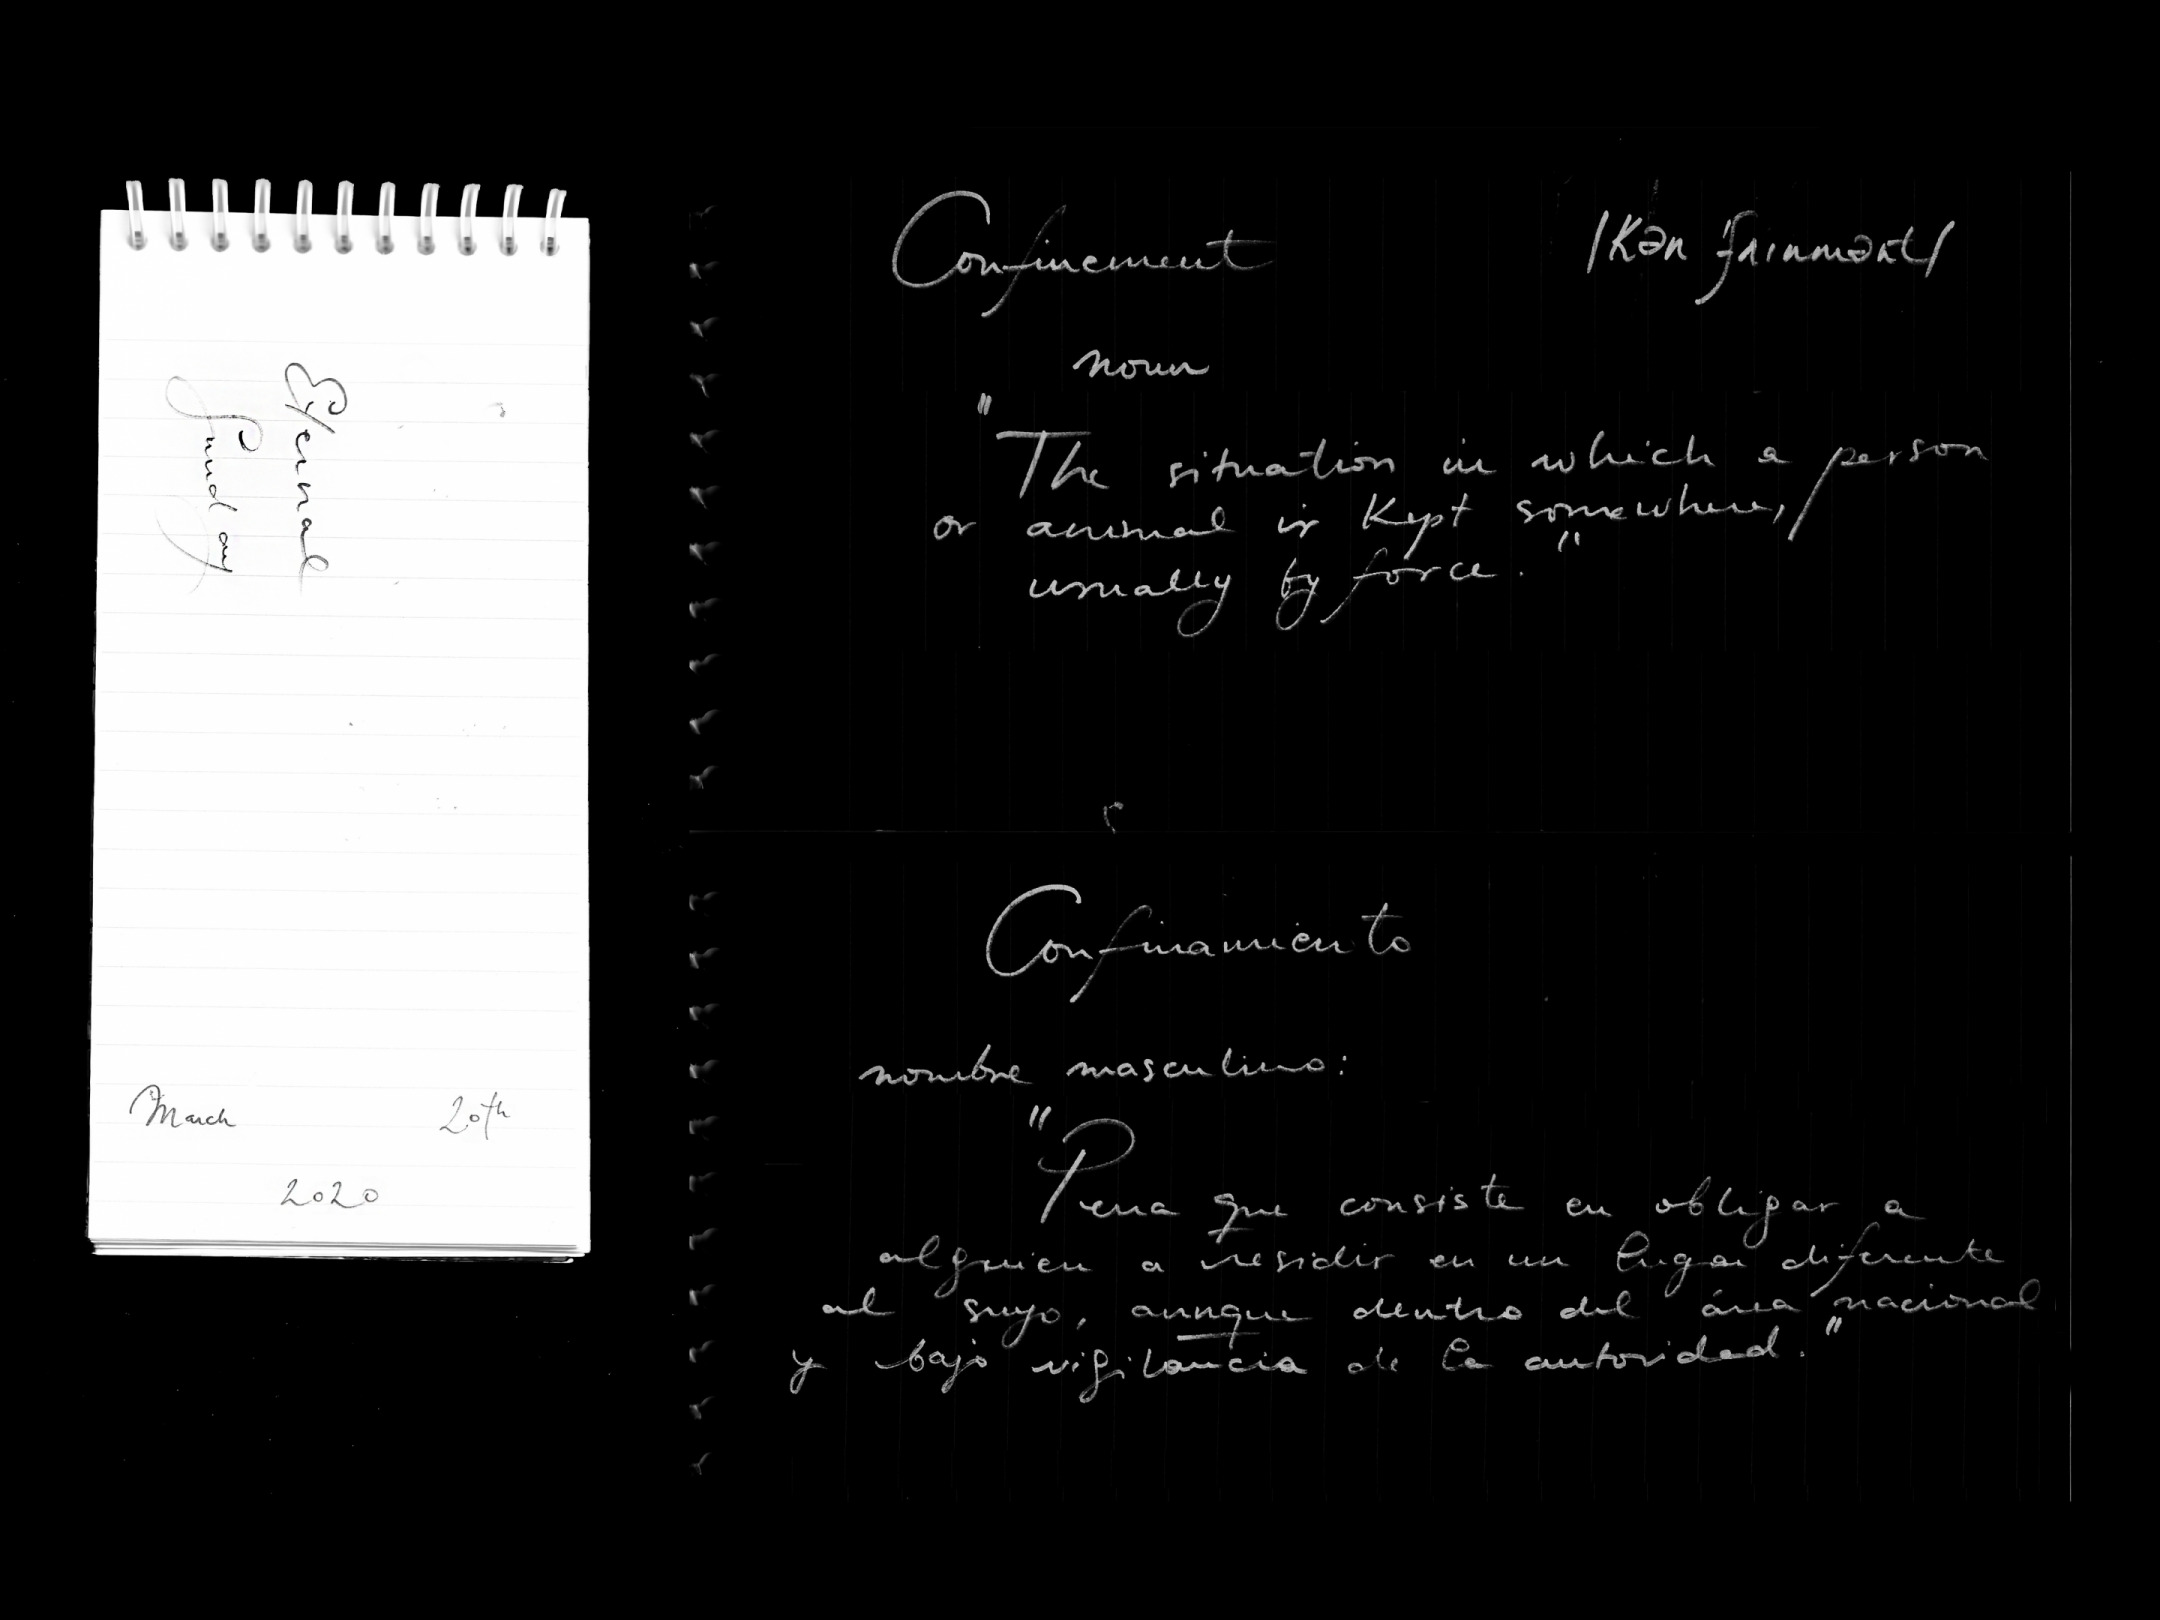 Eternal
Sunday
March 20th
2020
Confinement /Kən'faınmənt/
noun
"The situation in which a person
or animal is Kept somewhere,
usually by force."
Confinamiento
nombre masculino:
"Pena que consiste en obligar a
alguien a residir en un lugar diferente
al suyo, aunque dentro del área nacional
y bajo vigilancia de la autoridad."